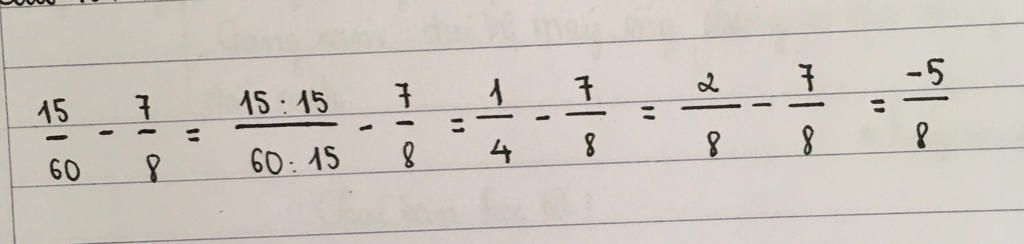 15/60 - 7/8 = 15:15/60:15 - 7/8 = 1/4 - 7/8 = 2/8 - 7/8 = -5/8